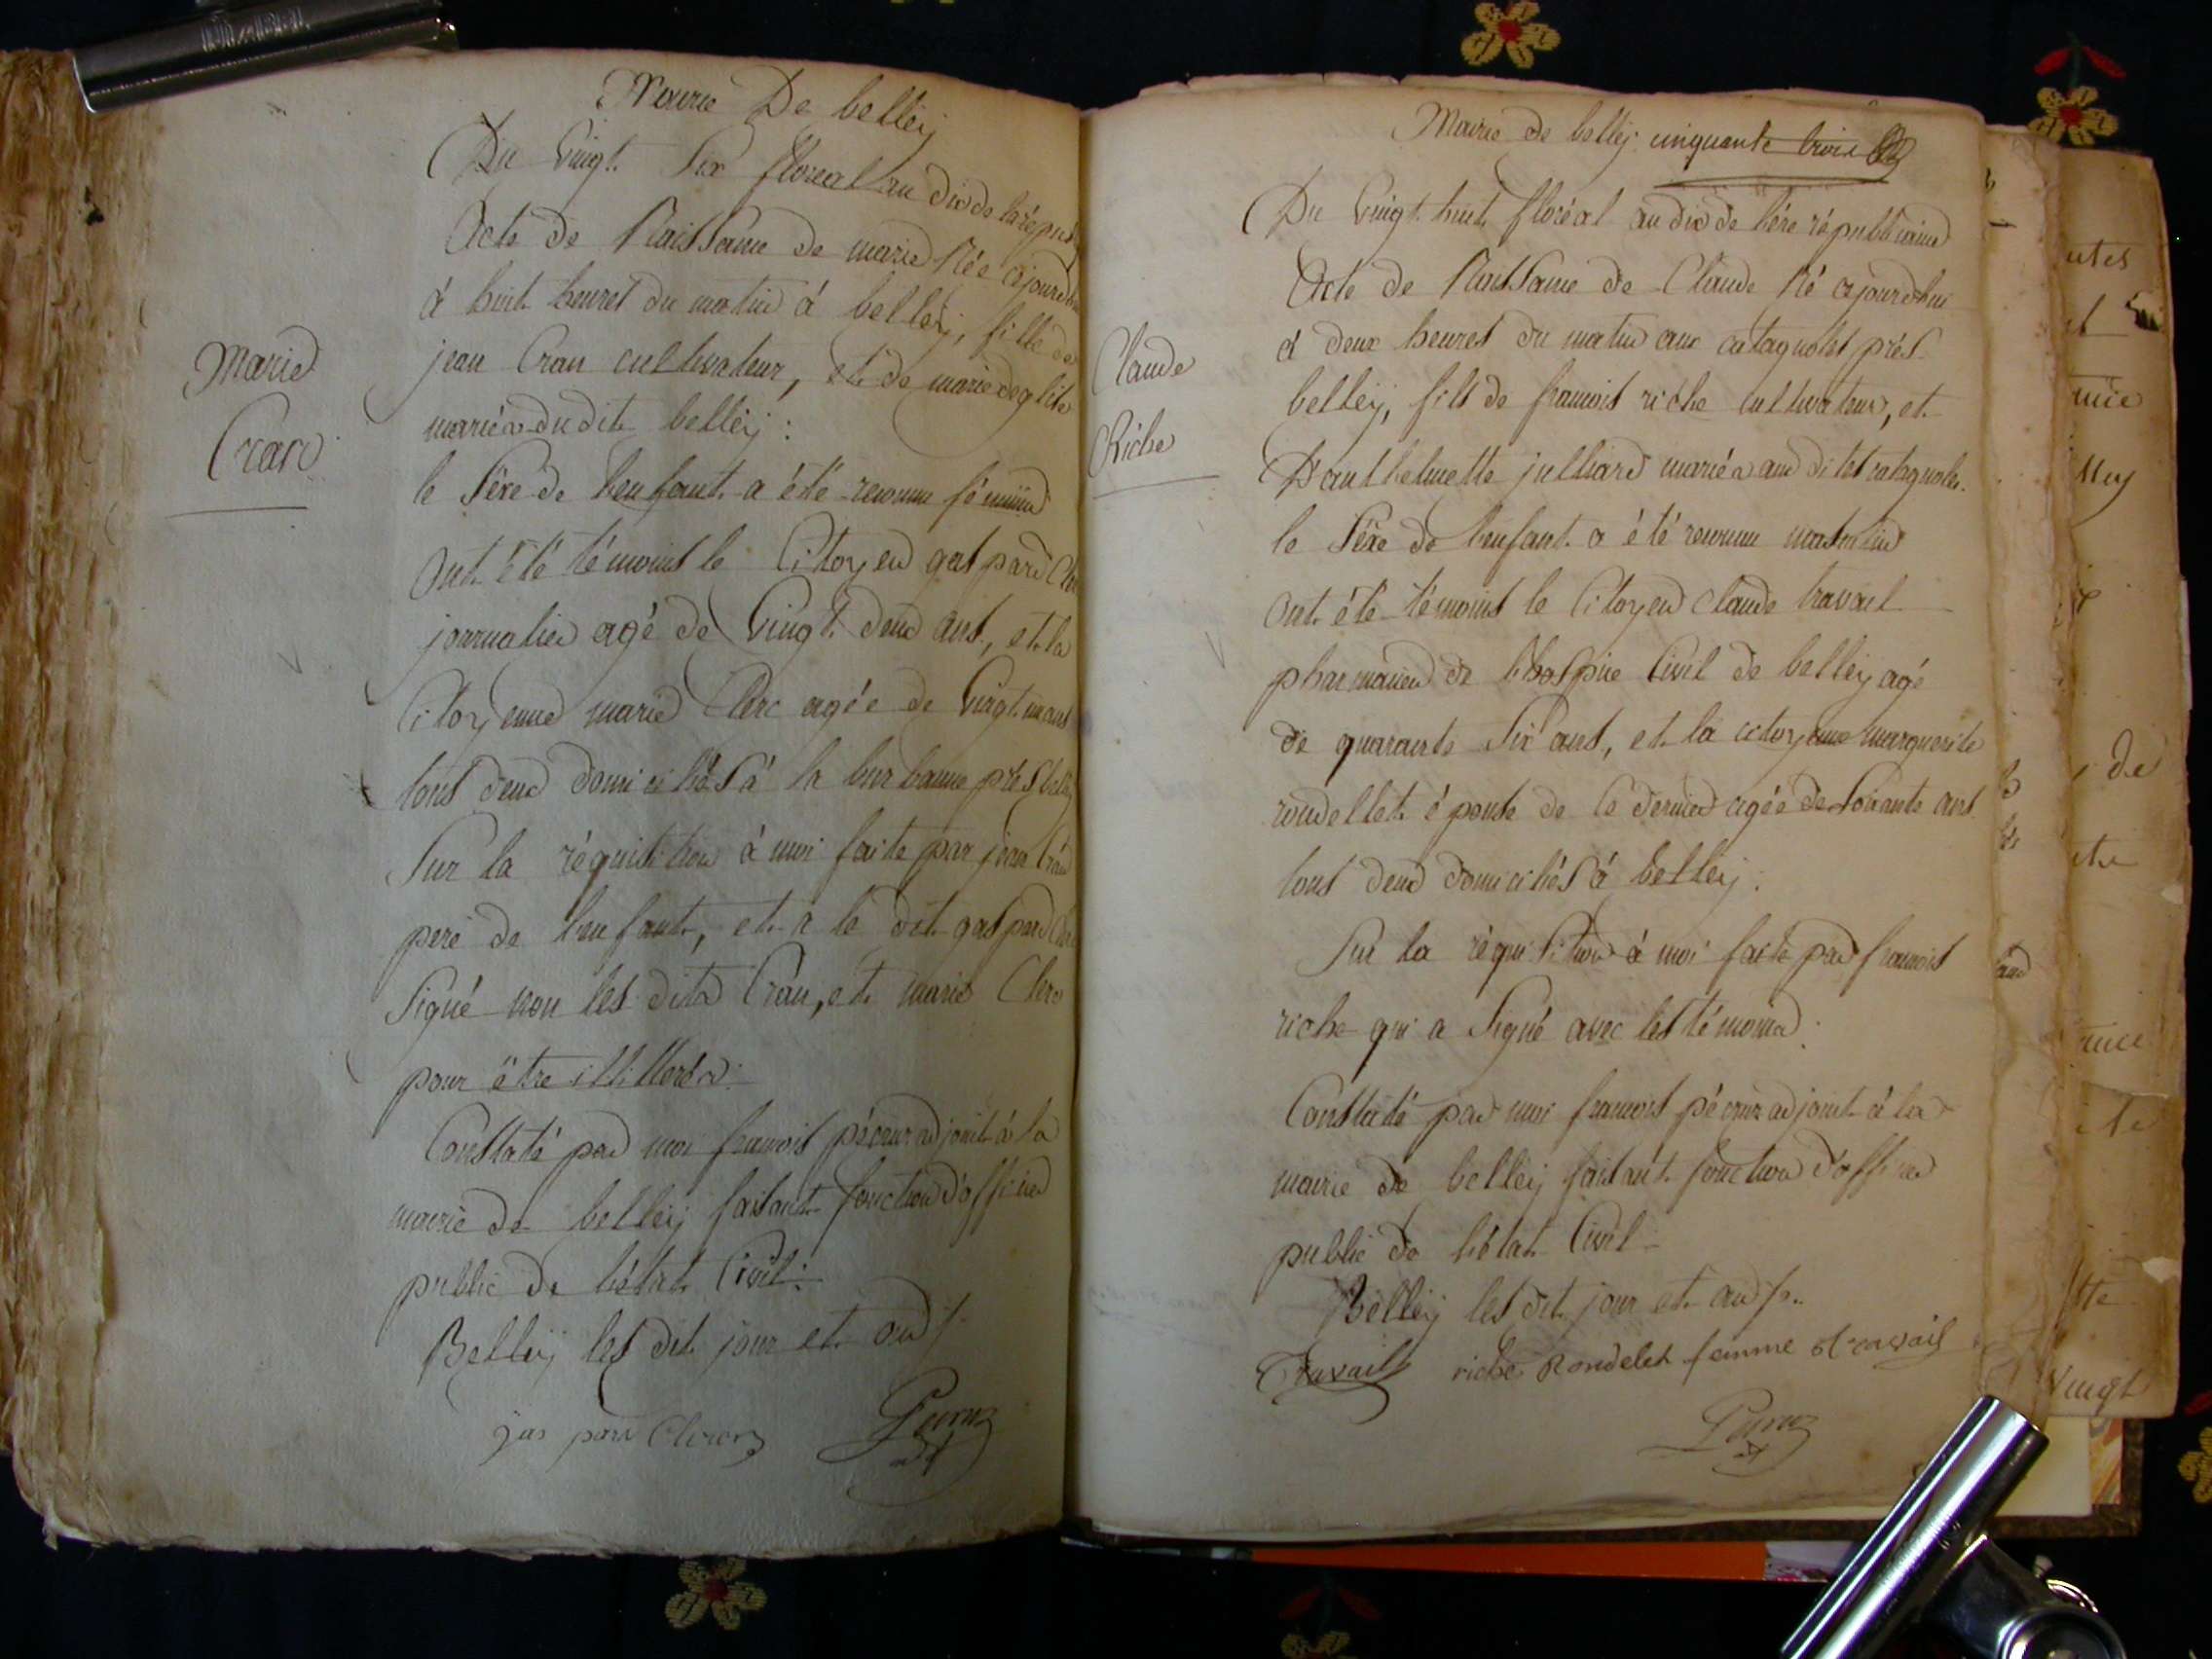 Mairie De belleÿ
Du Vingt Six floreal an dix de la répub
Acte de Naissance de marie Née cejourdhui
à huit heures du matin à belleÿ, fille de
jean Cran cultivateur, et de marie
mariés dudit belleÿ :
le Séxe de lenfant a été reconnu féminin
Ont été témoins le Citoyen gaspard Clerc
journalier agé de Vingt deux ans, et la
Citoyenne marie Clerc agée de Vingt un ans
tous deux domiciliés à la burbanne près belleÿ
Sur la réquisition à moi faite par jean Cran
pere de lenfant, et a le dit gaspard Clerc
Signé non les dits Cran, et marie Clerc
pour être illitterés :
Constaté par moi francois pécruz adjoint à la
mairie de belleÿ faisant fonction d'officier
public de l'état Civil :
Belleÿ les dit jour et an
gas pard Clerc
Pécruz
Marie
Cran
Mairie de belleÿ cinquante trois
Du Vingt huit floréal an dix de l'ére républicaine
Acte de Naissance de Claude Né cejourdhui
à deux heures du matin aux catagnoles près
belleÿ, fils de francois riche cultivateur, et
D'anthelmette julliard mariés aux dites catagnoles.
le Séxe de lenfant a été reconnu masculin
Ont été témoins le Citoyen claude travail
pharmacien de l'hospice Civil de belleÿ agé
de quarante Six ans, et la citoyenne marguerite
rondellet épouse de ce dernier agée de Soixante ans
tous deux domiciliés à belleÿ :
Sur la réquisition à moi faite par francois
riche qui a Signé avec les témoins :
Constaté par moi francois pécruz adjoint à la
mairie de belleÿ faisant fonction d'officier
public de l'état Civil
Belleÿ les dit jour et an
Travail riche Rondelet femme travail
Pécruz
Claude
Riche
de
vingt